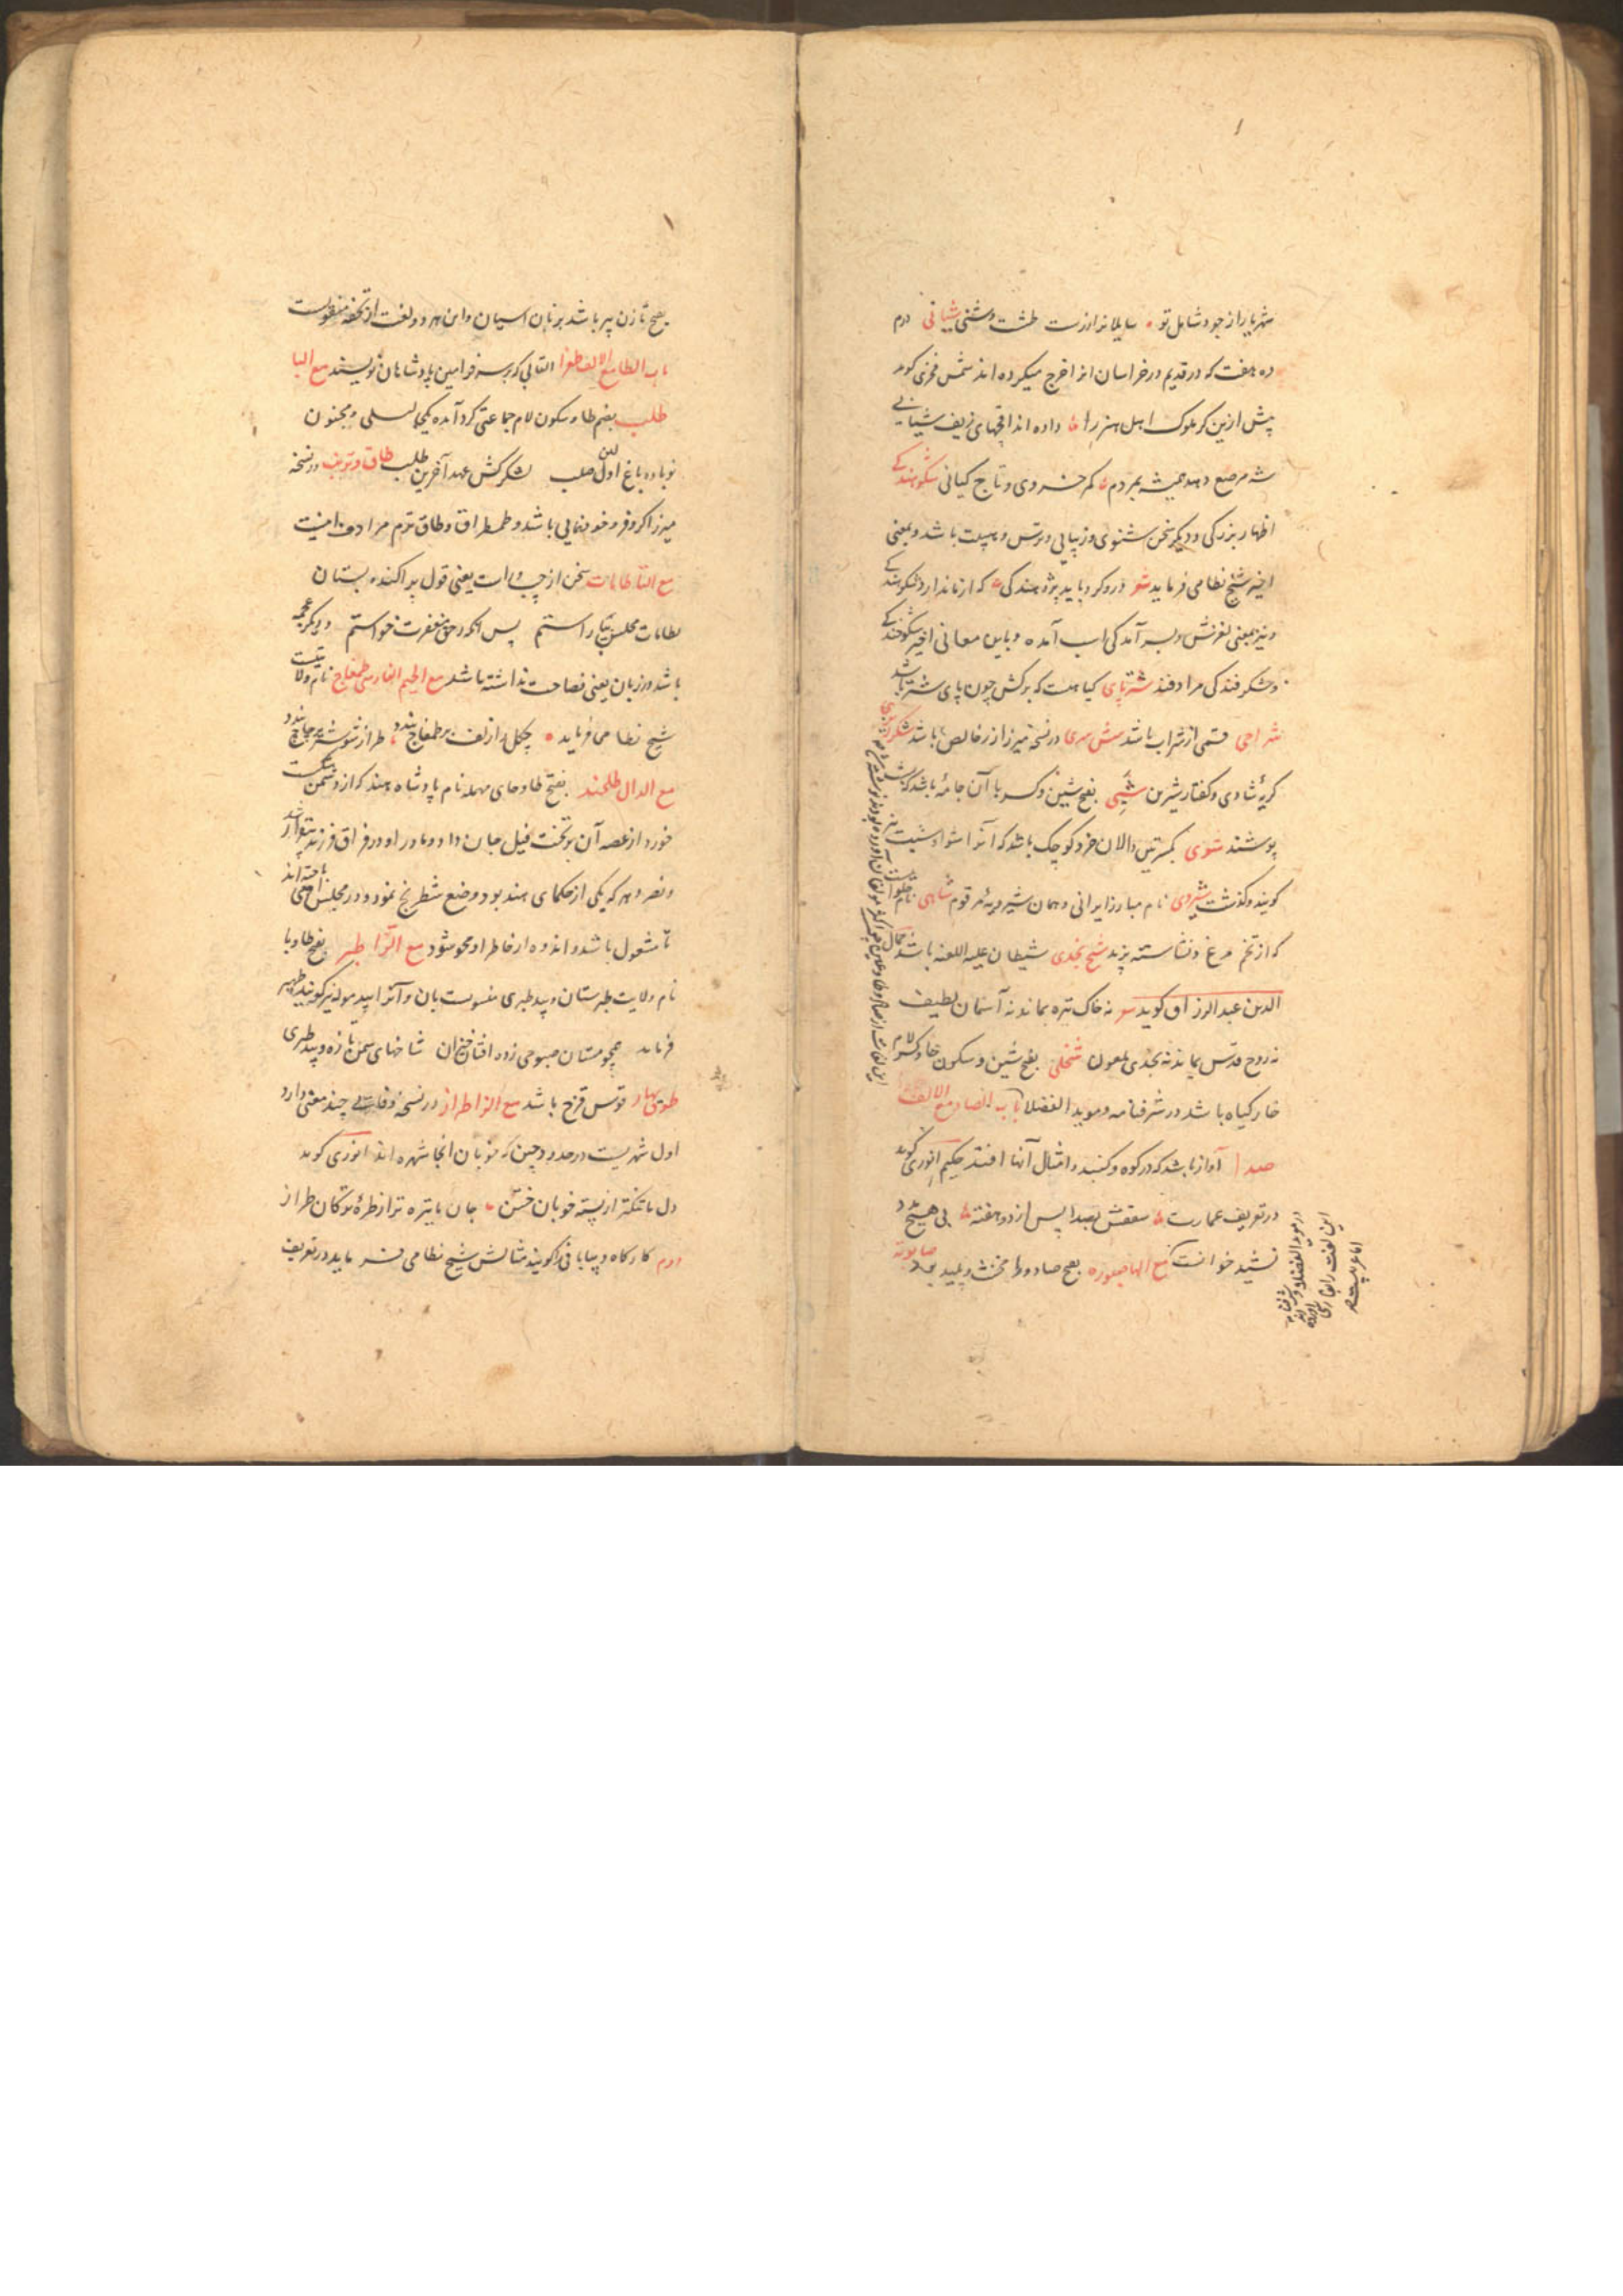 شهریار از جود شامل تو سایلانرا زرست طشت وشنی شیانی درم
ده هفت که در قدیم در خراسان انرا خرج میکرده اند شمس فخری کوید
پیش ازین کر ملوک اهل هنر را داده اند اقچهای زیف شیانی
شه مرصع دهد همیشه بمردم کمر خسروی و تاج کیانی شکوهندکی
اظهار بزرکی و دیکر سخن شنوی و زیبایی و ترس و هیبت باشد و بمعنی
اخیر شیخ نظامی فرماید درو کرد باید پژوهندکی که از ما ندارد شکوهندکی
و نیز بمعنی لغزش و بسر آمدکی اسب آمده و باین معانی اخیر شکوخندکی
و شکرفندکی مرادفند شترپای کیاهست که برکش چون پای شتر باشد
شراحی قسمی از شراب باشد شش سری در نسخه میرزا زر خالص باشد
کریهٔ شادی و کفتار شیرین شیی بفتح شین و کسر با آن جامهٔ باشد که
پوشند شوی بکسرتین دالان خرد کوچک باشد که آنرا
کویند و کذشت شیروی نام مبارز ایرانی و همان شیرویهٔ مرقوم شاهی نام حلوا
که از تخم مرغ و نشاسته پزند شیخ نجدی شیطان علیه اللعنه باشد جمال
الدین عبد الرزاق کوید نه خاک تیره بماند نه آسمان لطیف
نه روح قدس بماند نه نجدی ملعون شخلی بفتح شین و سکون خا و کسر لام
خار کیاه باشد در شرفنامه و موید الفضلا باب الصاد مع الالف
صدا آواز باشد که در کوه و کنبد و امثال آنها افتد حکیم انوری کوید
در تعریف عمارت سقفش بصدا پس از دو هفته بی هیچ
نشید خوانت مع الها صبوره بفتح صاد و با مخنث و پلید
بفتح تا زن پیر باشد بزبان اسیان و این هر دو لغت از تحفه منقولست
باب الطا مع الالف طغرا القابی که بر سر فرامین پادشاهان نویسند مع البا
طلب بضم طا و سکون لام جماعتی کرد آمده یکجا لسلی و مجنون
نوباوه باغ اولین صلب لشکر کش عهد آخرین طلب طاق و ترنب در نسخه
میرزا کر و فر و خودنمایی باشد و طمطراق و طاق ترم مرادف اینست
مع التا طامات سخن از چپ و راست یعنی قول پراکنده بستان
طامات مجلس بیاراستم پس انکه ز حق مغفرت خواستم و دیکر
باشد در زبان یعنی فصاحت نداشته باشد مع الجیم الفارسی طمغاج نام ولایتیست
شیخ نظامی فرماید چکل را زلف بر طمغاج بندد طراز شوشتر بر چاچ بندد
مع الدال طلحند بفتح طا و حای مهمله نام پادشاه هند که از دشمن شکست
خورد از غصه آن بر تخت فیل جان داد و مادر او در فراق فرزند بیقرار شد
و نصر دهر که یکی از حکمای هند بود وضع شطرنج نمود و در مجلس
تا مشغول باشد و اندوه از خاطر او محو شود مع الرا طبر بفتح طا و با
نام ولایت طبرستان و بید طبری منسوبست بان و آنرا بید موله نیز کویند ظهیر
فرماید همچو مستان صبوحی زده افتان خیزان شاخهای سمن تازه و بید طبری
طوق بهار قوس قزح باشد مع الزا طراز در نسخه وفایی چند معنی دارد
اول شهریست در حدود چین که خوبان انجا شهره اند انوری کوید
دل ما تنکتر از پسته خوبان ختن جان ما تیره تر از طرهٔ ترکان طراز
دوم کارکاه دیبا بافی را کویند مثالش شیخ نظامی فرماید در تعریف